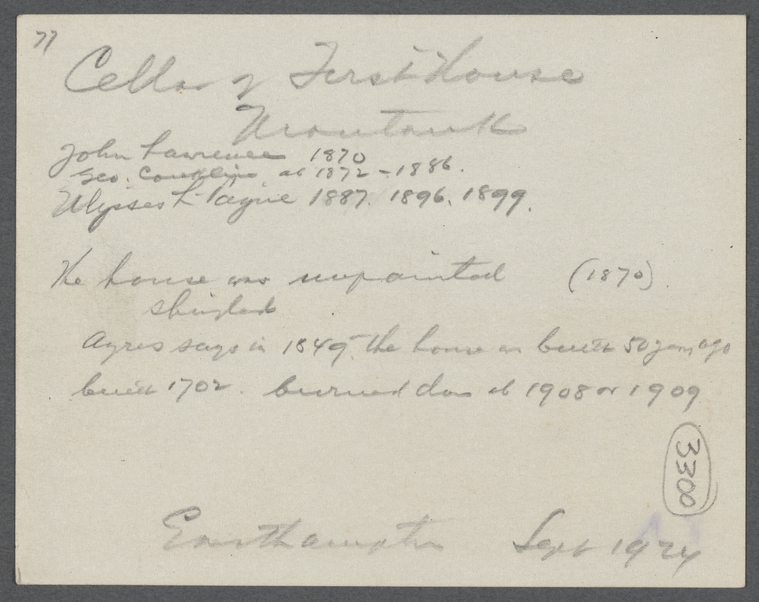 77
Cellar of First House
Montauk
John Lawrence 1870
Geo. Conklin ab 1872-1886.
Ulysses L. Payne 1887. 1896. 1899.
The house was unpainted (1870).
shingled
Ayres says in 1849 the house was built 50 years ago
built 1702. burned down ab 1908 or 1909
3300
Easthampton Sept 1924